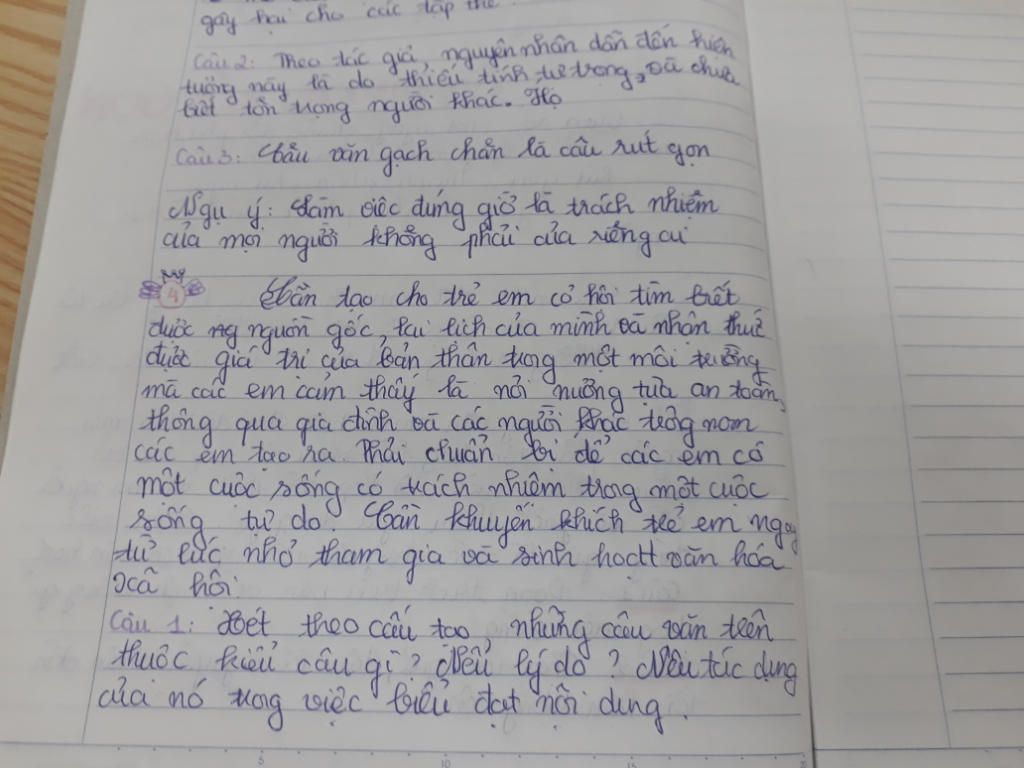 gây hại cho các tập thể.
Câu 2: Theo tác giả, nguyên nhân dẫn đến hiện
tượng này là do thiếu tính tự trọng, và chưa
biết tôn trọng người khác. Họ
Câu 3: Câu văn gạch chân là câu rút gọn
Ngụ ý: Làm việc đúng giờ là trách nhiệm
của mọi người không phải của riêng ai
4 Cần tạo cho trẻ em cơ hội tìm biết
được ng nguồn gốc, lai lịch của mình và nhận thức
được giá trị của bản thân trong một môi trường
mà các em cảm thấy là nơi nương tựa an toàn,
thông qua gia đình và các người khác trông nom
các em tạo ra. Phải chuẩn bị để các em có
một cuộc sống có trách nhiệm trong một cuộc
sống tự do. Cần khuyến khích trẻ em ngay
từ lúc nhỏ tham gia và sinh hoạt văn hóa
xã hội
Câu 1: Xét theo cấu tạo những câu văn trên
thuộc kiểu câu gì? Nêu lý do? Nêu tác dụng
của nó trong việc biểu đạt nội dung.
5 10 15